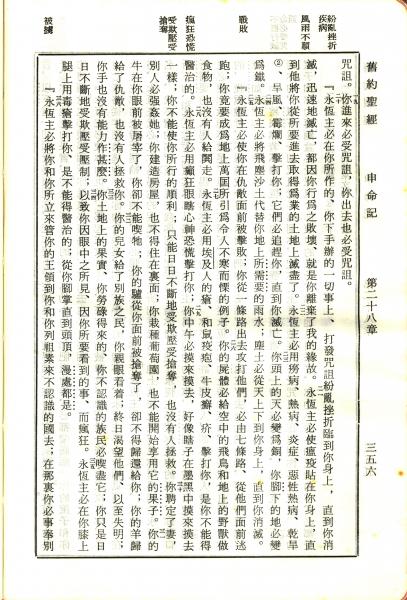 舊約聖經　申命記　第二十八章　三五六
紛亂挫折
疾病
風雨不順
戰敗
瘋狂恐慌
受欺壓受
搶奪
被擄
咒詛。你進來必受咒詛,你出去也必受咒詛。
『永恆主必在你所作的、你下手辦的一切事上、打發咒詛紛亂挫折臨到你身上,直到你消
滅、迅速地滅亡、都因你行爲之敗壞、就是你離棄了我的緣故。永恆主必使瘟疫貼在你身上,直
到他將你從所要進去取得爲業的土地上滅盡了。永恆主必用癆病、熱病、炎症、惡性熱病、乾旱
②、旱風、霉爛、擊打你;它們必追趕你,直到你滅亡。你頭上的天必變爲銅,你腳下的地必變
爲鐵。永恆主必將飛塵沙土代替你地上所需要的雨水;塵土必從天上下到你身上,直到你消滅。
『永恆主必使你在仇敵面前被擊敗;你從一條路出去攻打他們,必由七條路、從他們面前逃
跑;你竟要成爲地上萬國所引爲令人不寒而慄的例子。你的屍體必給空中的飛鳥和地上的野獸做
食物,也沒有人給鬨走。永恆主必用埃及人的瘡、和鼠疫疱、牛皮癬、疥、擊打你,是你不能得
醫治的。永恆主必用癲狂眼瞎心神恐慌擊打你;你中午必摸來摸去,好像瞎子在墨黑中摸來摸去
一樣;你不能使你所行的順利;只能日日不斷地受欺壓受搶奪,也沒有人拯救。你聘定了妻,
別人必强姦她;你建造房屋,也不得住在裏面;你栽種葡萄園,也不能開始享用它的果子。你的
牛在你眼前被屠宰了,你卻不能喫牠;你的驢從你面前被搶奪了,卻不得歸還給你,你的羊歸
給了仇敵,也沒有人拯救你。你的兒女給了別族之民,你親眼看着;終日渴望他們、以至失明;
你手也沒有能力作甚麼。你土地上的果實、你勞碌得來的、你不認識的族民必喫盡它;你只是日
日不斷地受欺壓受壓制;以致你因眼中之所見、因你所要看到的事、而瘋狂。永恆主必在你膝上
腿上用毒瘡擊打你,是不能得醫治的;從你腳掌直到頭頂、漫處都是。
『永恆主必將你和你所立來管你的王領到你和你列祖素來不認識的國去;在那裏你必事奉別